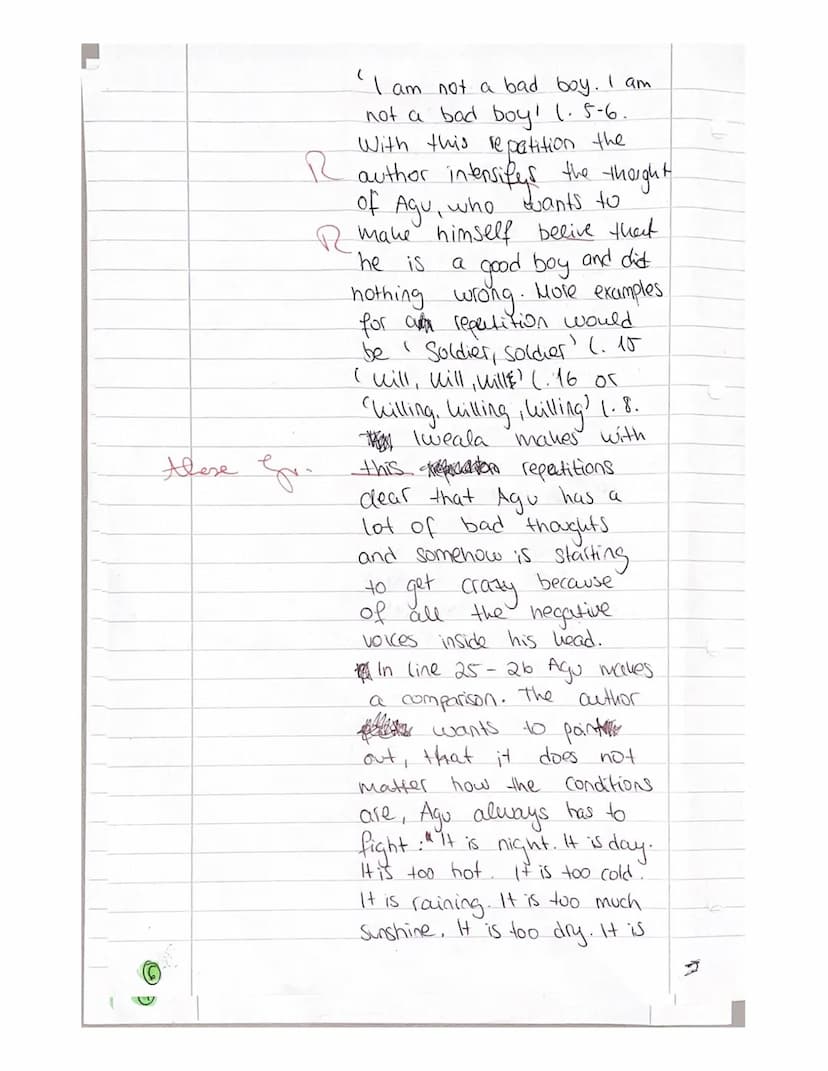 'I am not a bad boy. I am
not a bad boy' l. 5-6.
With this repatition the
R author intensifys the thought
of Agu, who wants to
R make himself belive that
he is a good boy and did
nothing wrong. More examples
for repetition would
be 'Soldier, soldier' l. 15
'kill, kill, kill' l. 16 or
'killing, killing, killing' l. 8.
Iweala makes with
these Gr. this repetitions
clear that Agu has a
lot of bad thoughts
and somehow is starting
to get crazy because
of all the negative
voices inside his head.
In line 25-26 Agu makes
a comparison. The author
wants to point
out, that it does not
matter how the conditions
are, Agu always has to
fight: "It is night. It is day.
It is too hot. It is too cold.
It is raining. It is too much
sunshine. It is too dry. It is
6